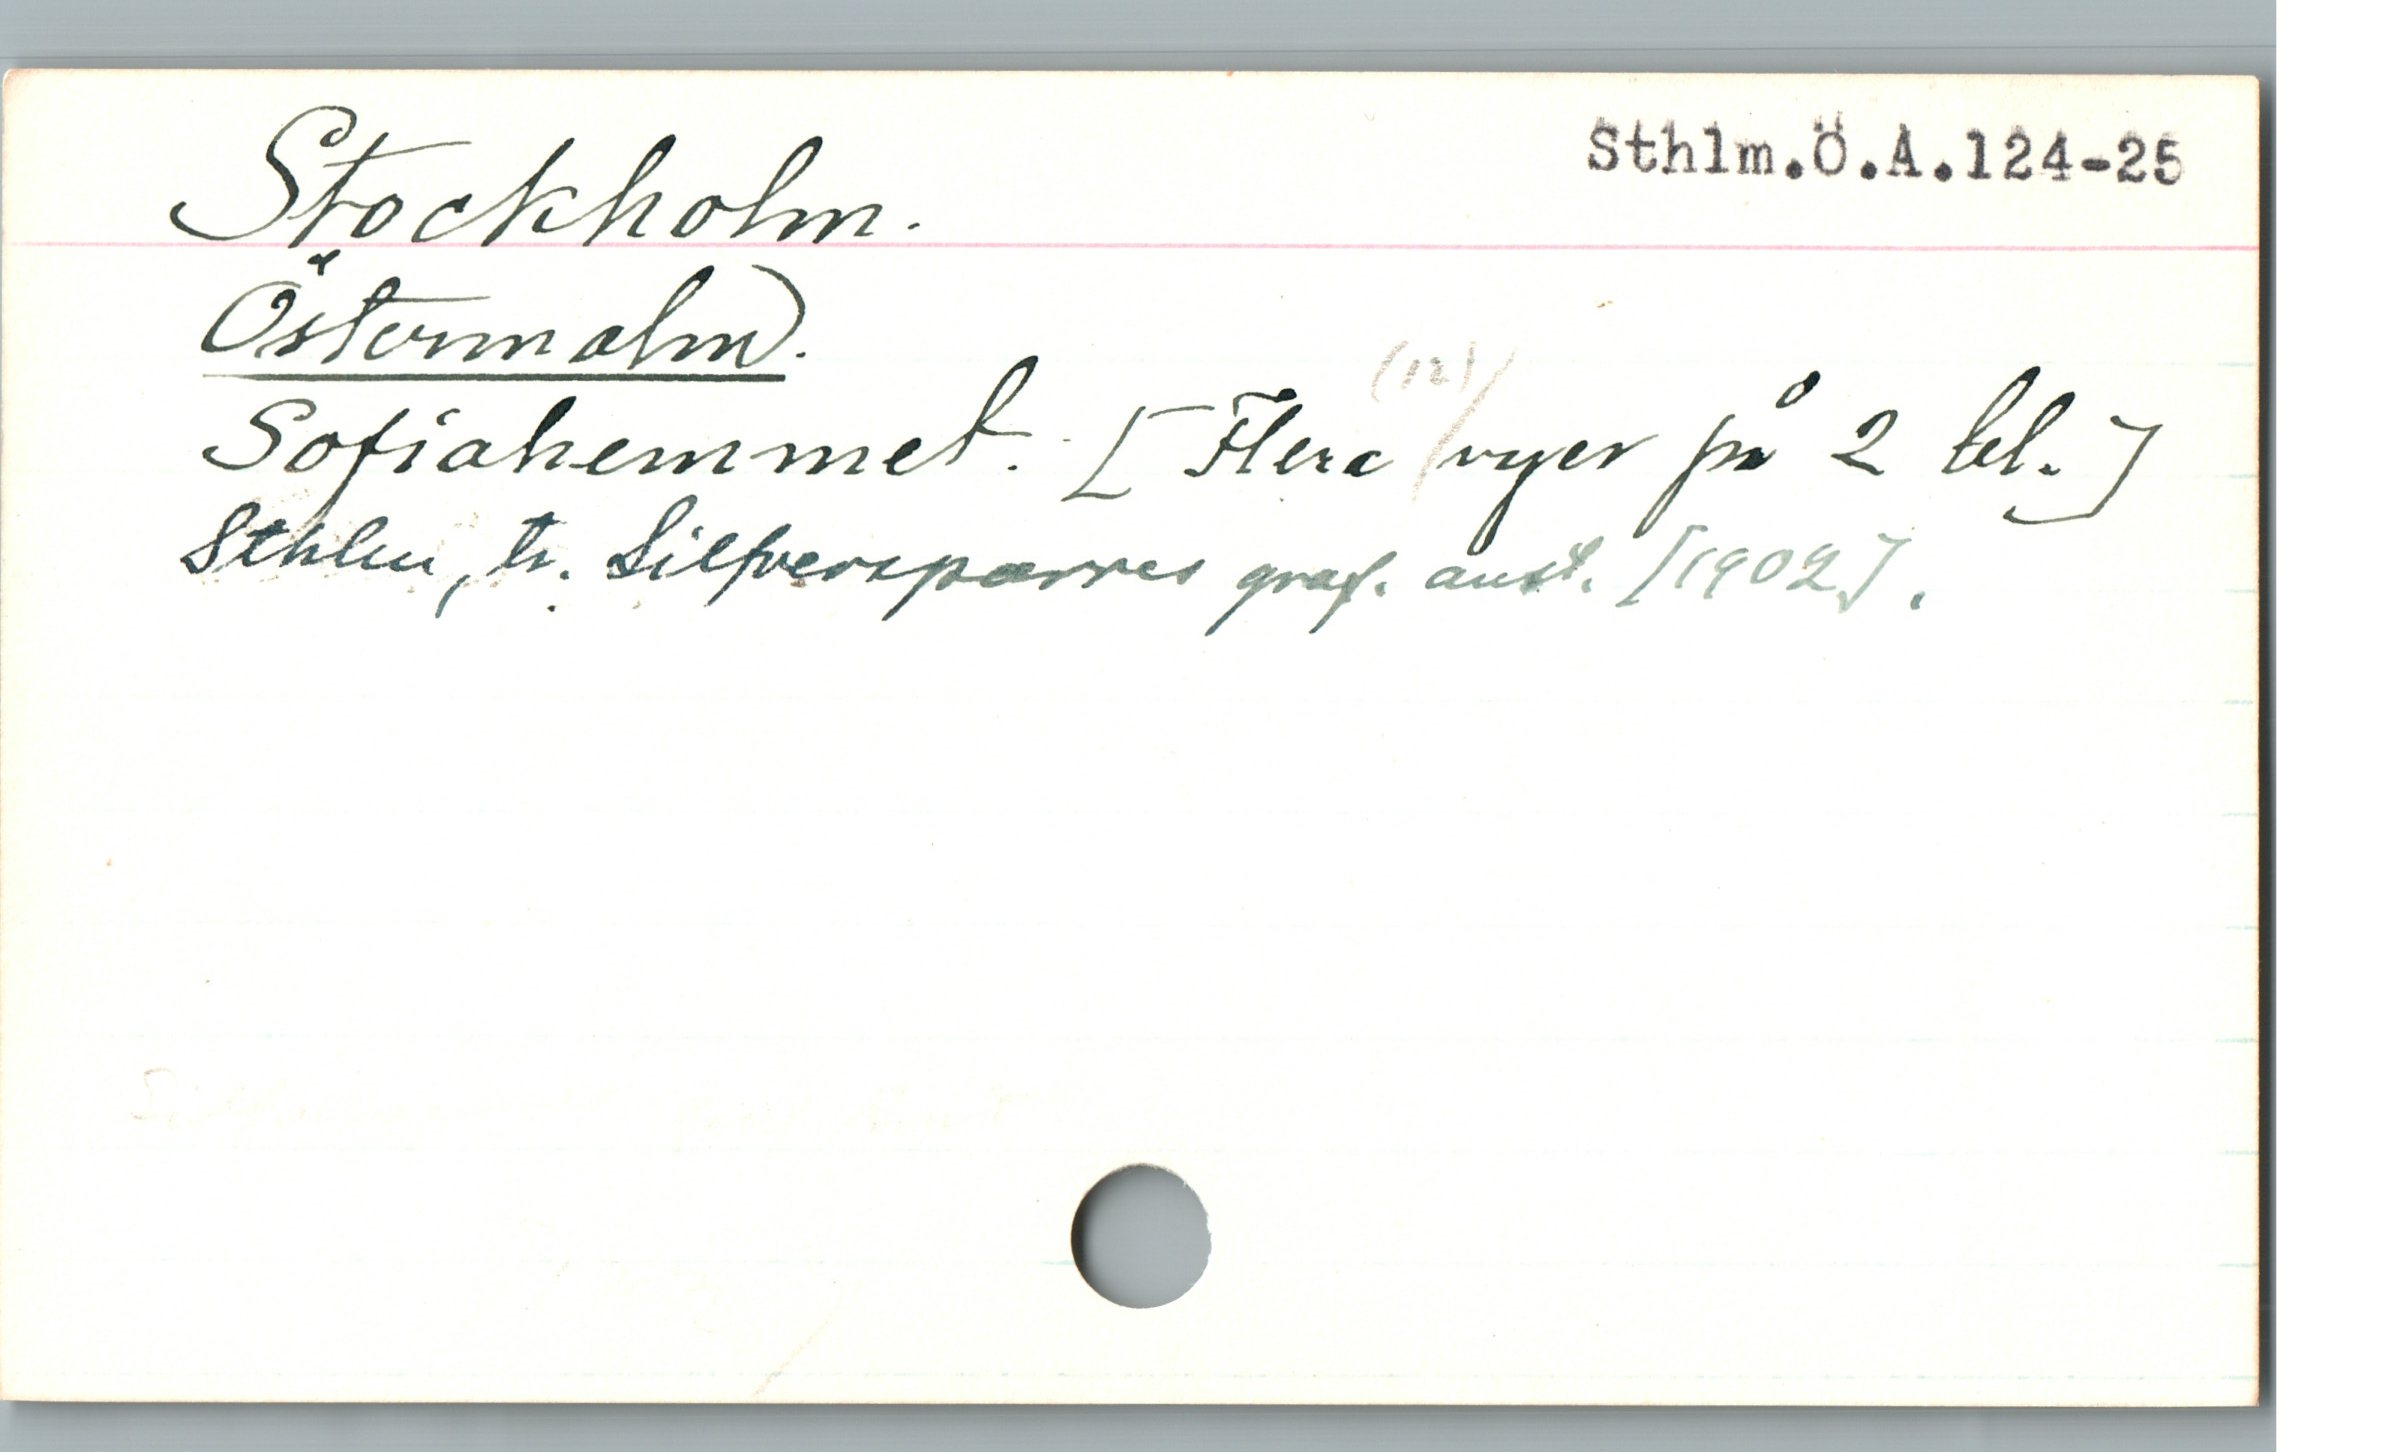 Sthlm.Ö.A.124-25
Stockholm.
Östermalm).
Sofiahemmet. [Flera (12) vyer på 2 bl.]
Sthlm, tr. Silfversparres graf. anst. [1902].